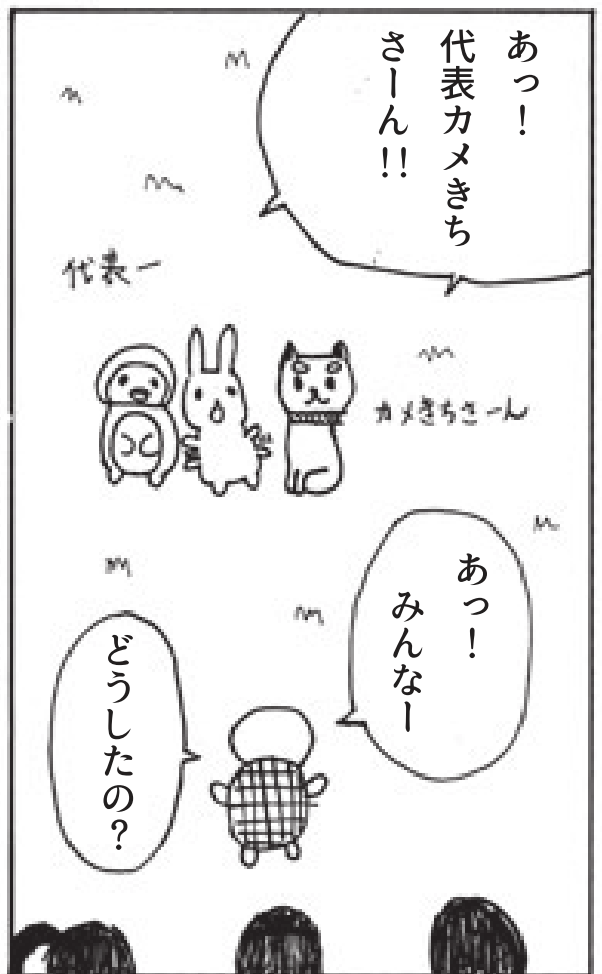 あっ！
代表カメきち
さーん!!
代表ー
カメきちさーん
あっ！
みんなー
どうしたの？